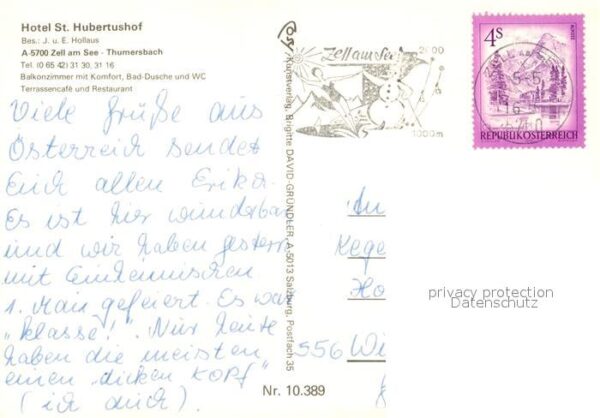 Hotel St. Hubertushof
Bes.: J. u. E. Hollaus
A-5700 Zell am See - Thumersbach
Tel. (0 65 42) 31 30, 31 16
Balkonzimmer mit Komfort, Bad-Dusche und WC
Terrassencafé und Restaurant
Viele Grüße aus
Österreich sendet
Euch allen Erika.
Es ist hier wunderbar
und wir haben gestern
mit Einheimischen
1. Mai gefeiert. Es war
"klasse!" Nur heute
haben die meisten
einen "dicken KOPf"
(ich auch).
Cosy Kunstverlag, Brigitte DAVID-GRÜNDLER, A-5013 Salzburg, Postfach 35
Nr. 10.389
Zell am See
2000
1000m
4S
REPUBLIK ÖSTERREICH
An
Kege
Ho
556 Wi
privacy protection
Datenschutz